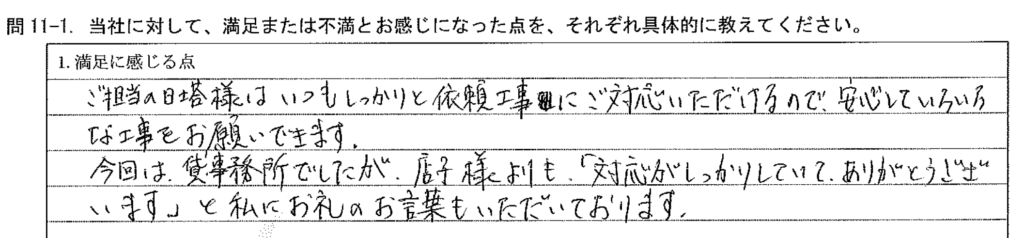 問 11-1. 当社に対して、満足または不満とお感じになった点を、それぞれ具体的に教えてください。
1. 満足に感じる点
ご担当の日塔様はいつもしっかりと依頼工事にご対応いただけるので、安心していろいろ
な工事をお願いできます。
今回は、貸事務所でしたが、店子様よりも、「対応がしっかりしていて、ありがとうござ
います」と私にお礼のお言葉もいただいております。